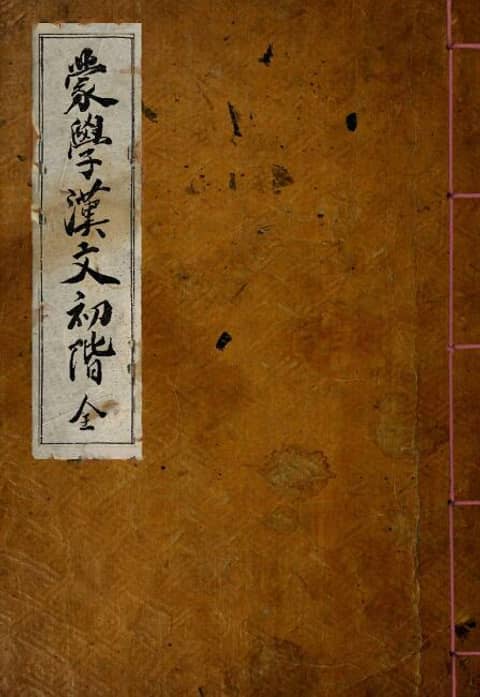 蒙學漢文初階 全